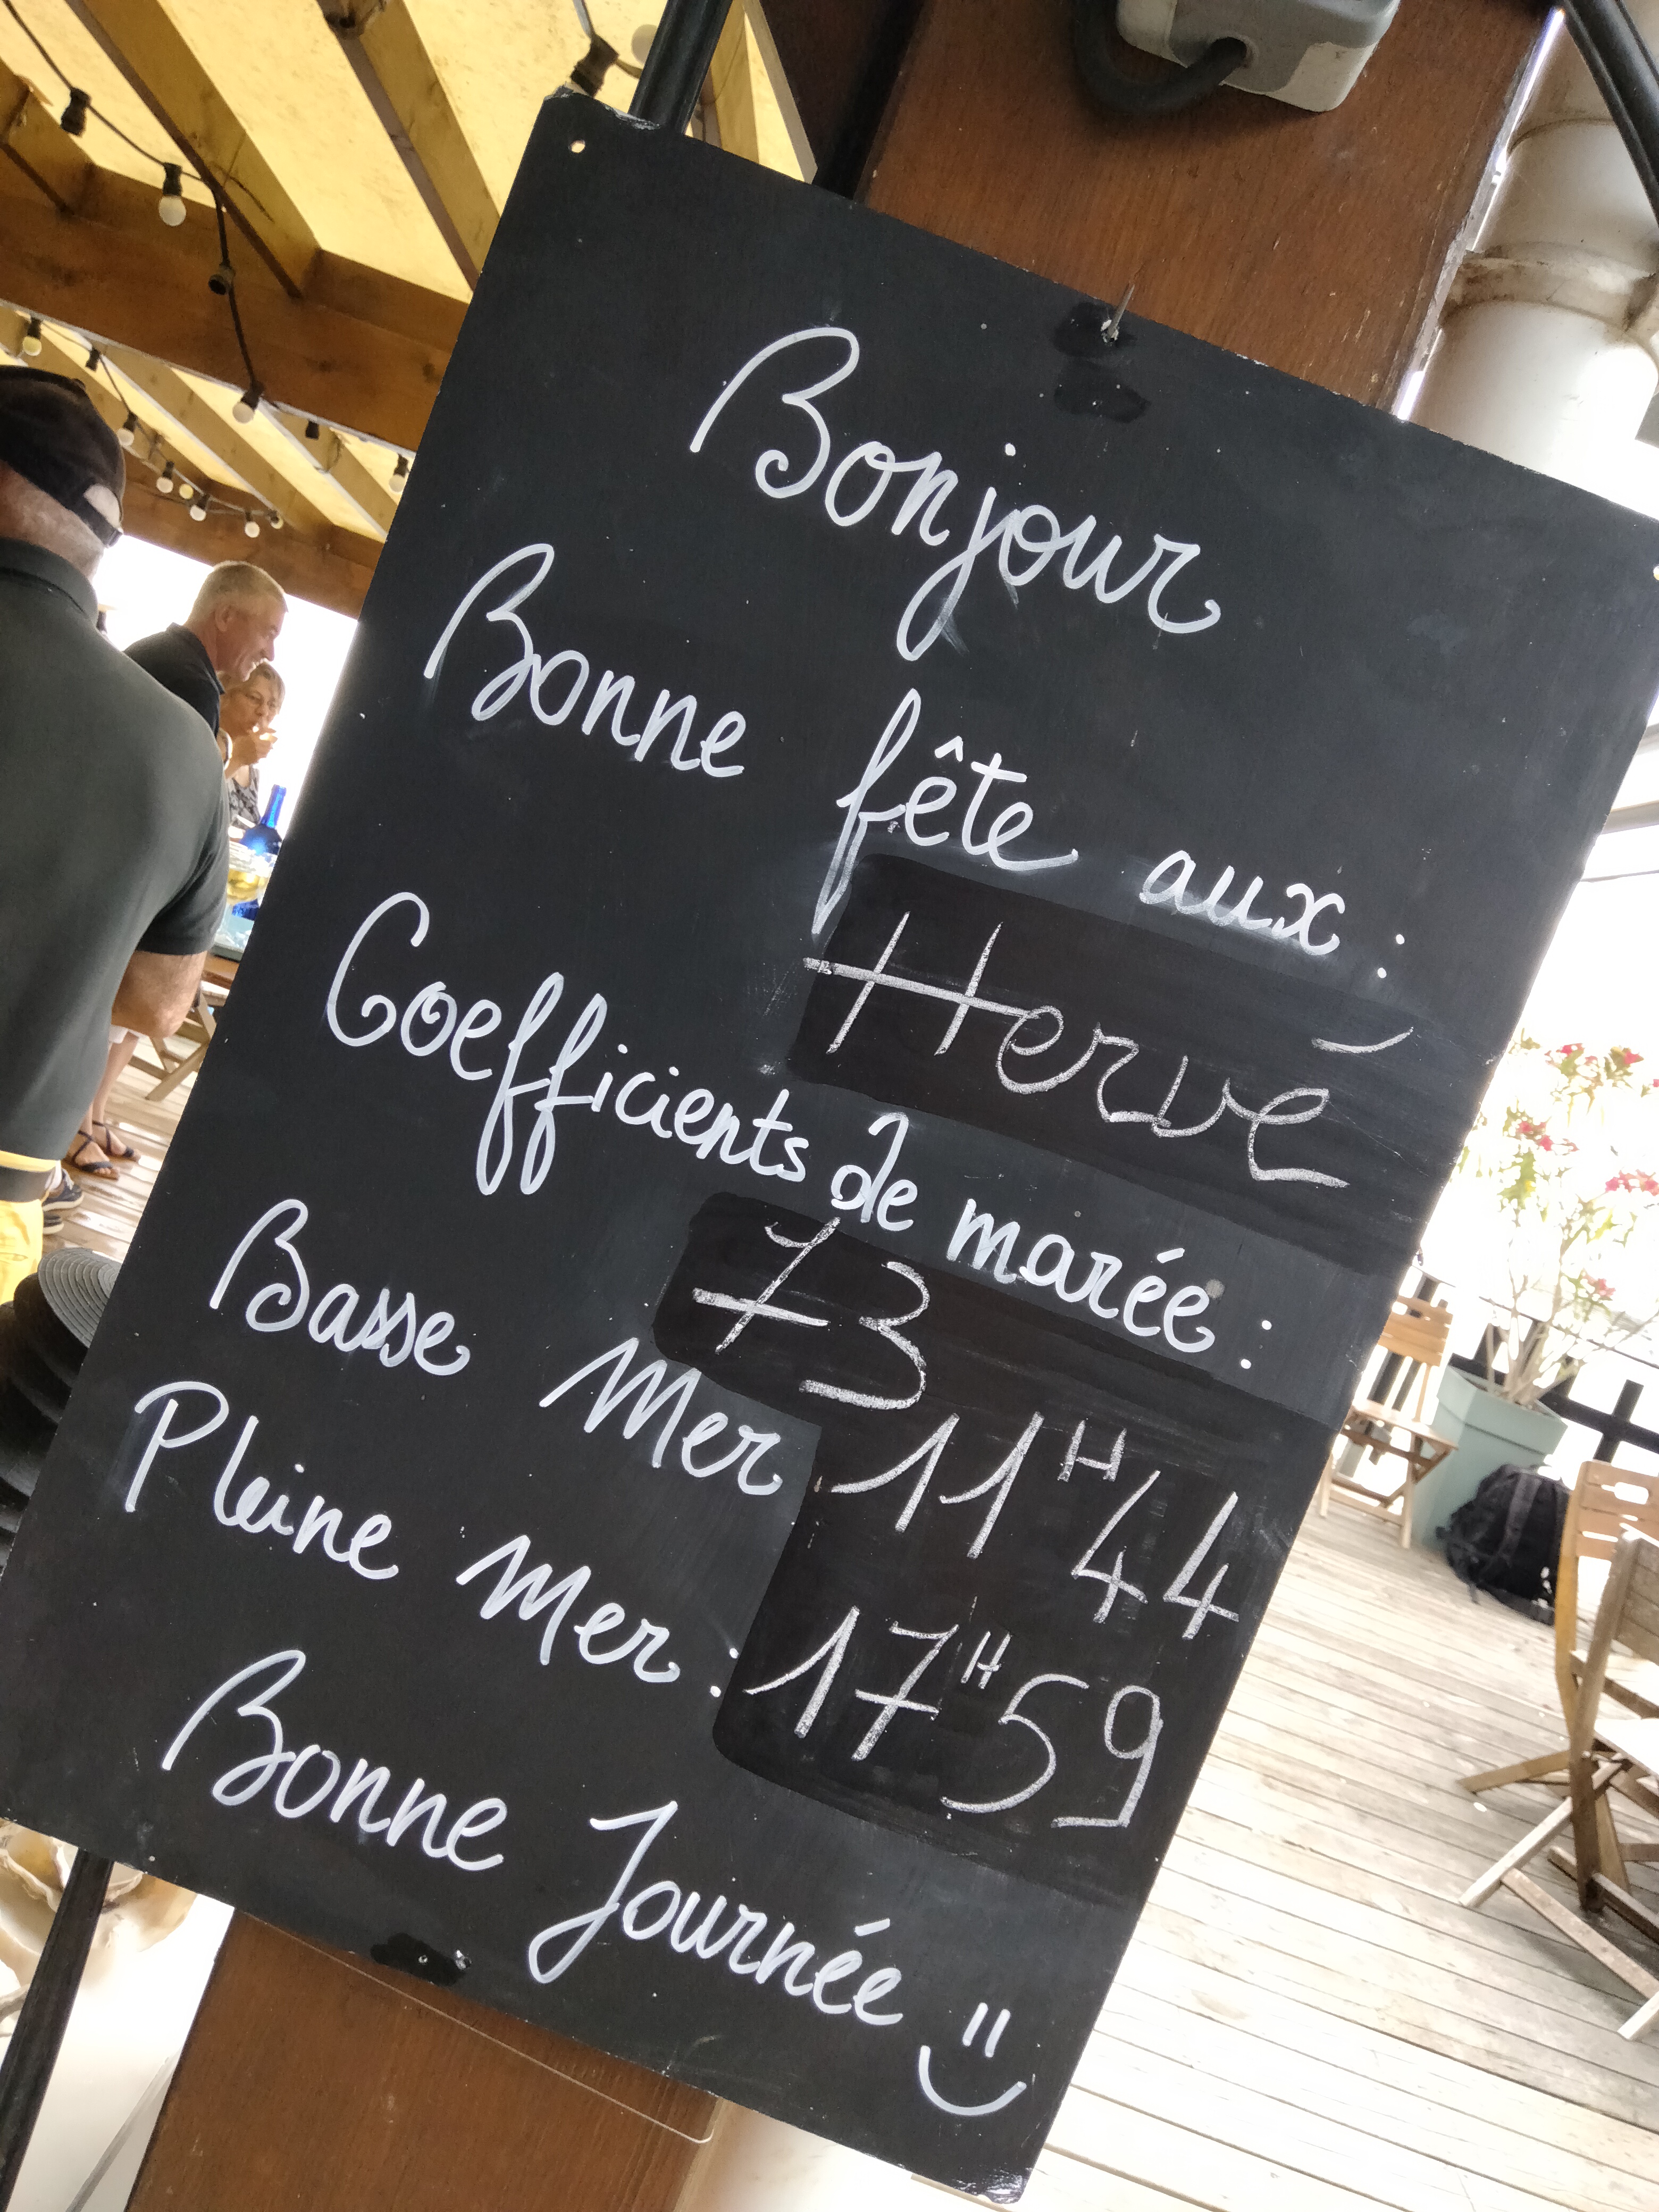 Bonjour
Bonne fête aux :
Hervé
Coefficients de marée :
73
Basse Mer : 11H44
Pleine Mer : 17H59
Bonne Journée